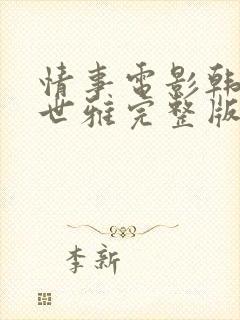 情事电影韩
世雅完整版
李新